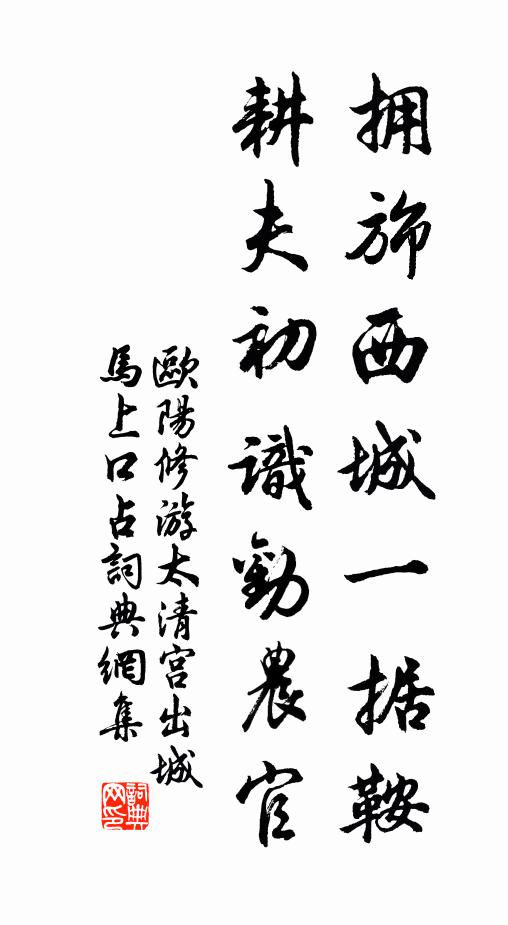 拥旆西城一据鞍
耕夫初識勸農官
歐陽修游太清宫出城
馬上口占詞典網集
詞典
网印